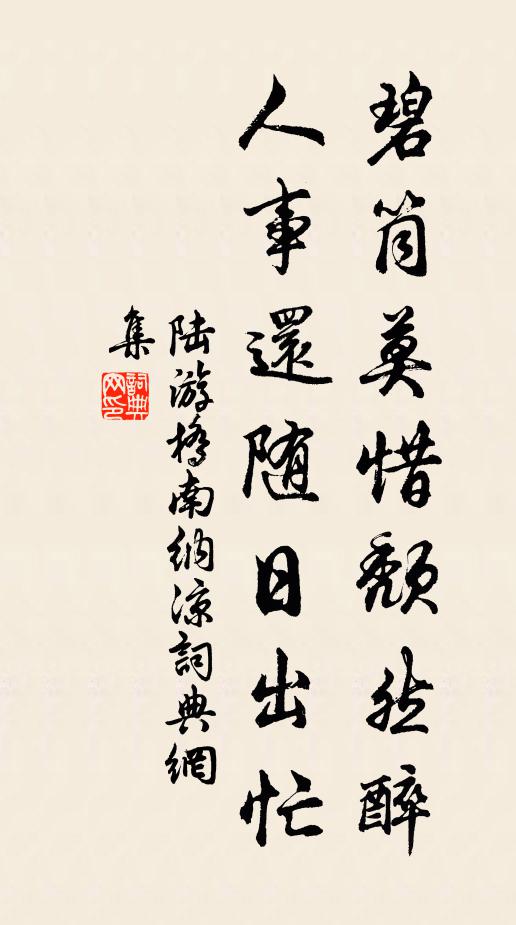 碧筒莫惜頹然醉
人事還随日出忙
陆游橋南納凉詞典網
集
詞典网印